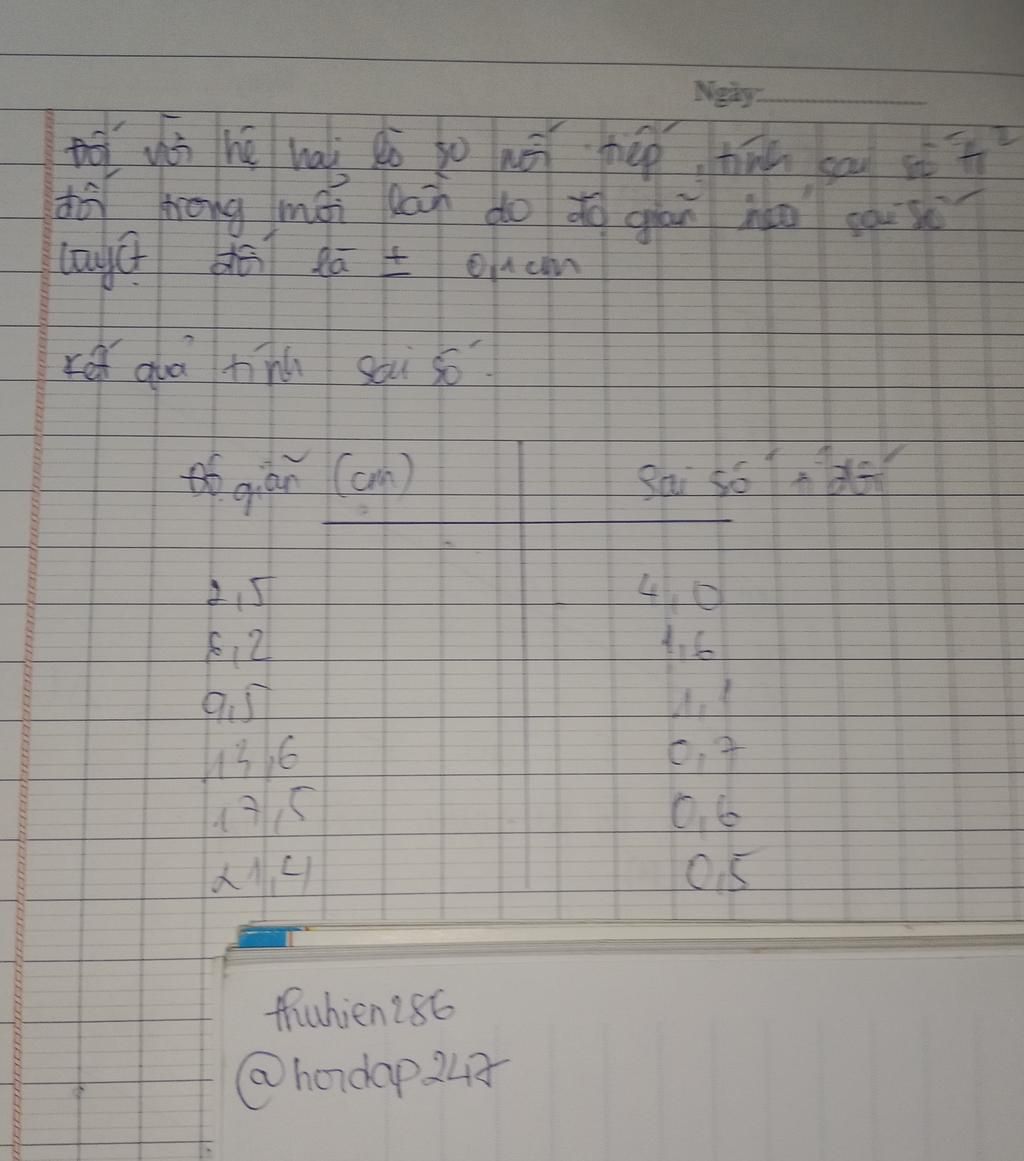 Ngày:
Đối với hệ hai lò so nối tiếp, tính sai số tỉ
đối trong mỗi lần đo độ giãn nếu sai số
tuyệt đối là ± 0,1cm
kết quả tính sai số.
Độ giãn (cm) Sai số tỉ đối
2,5 4,0
6,2 1,6
9,5 1,1
13,6 0,7
17,5 0,6
21,4 0,5
thuhien286
@hoidap247